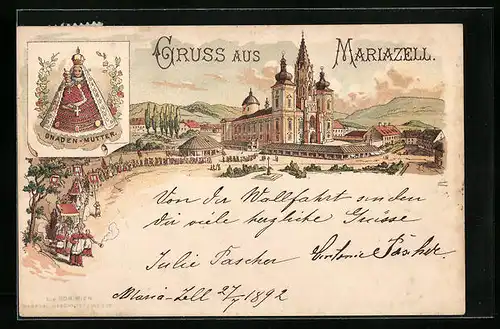 GRUSS AUS MARIAZELL.
GNADEN-MUTTER.
Von der Wallfahrt senden
dir viele herzliche Grüsse
Julie Tascher Antonie Tascher
Maria-Zell 27/5 1892